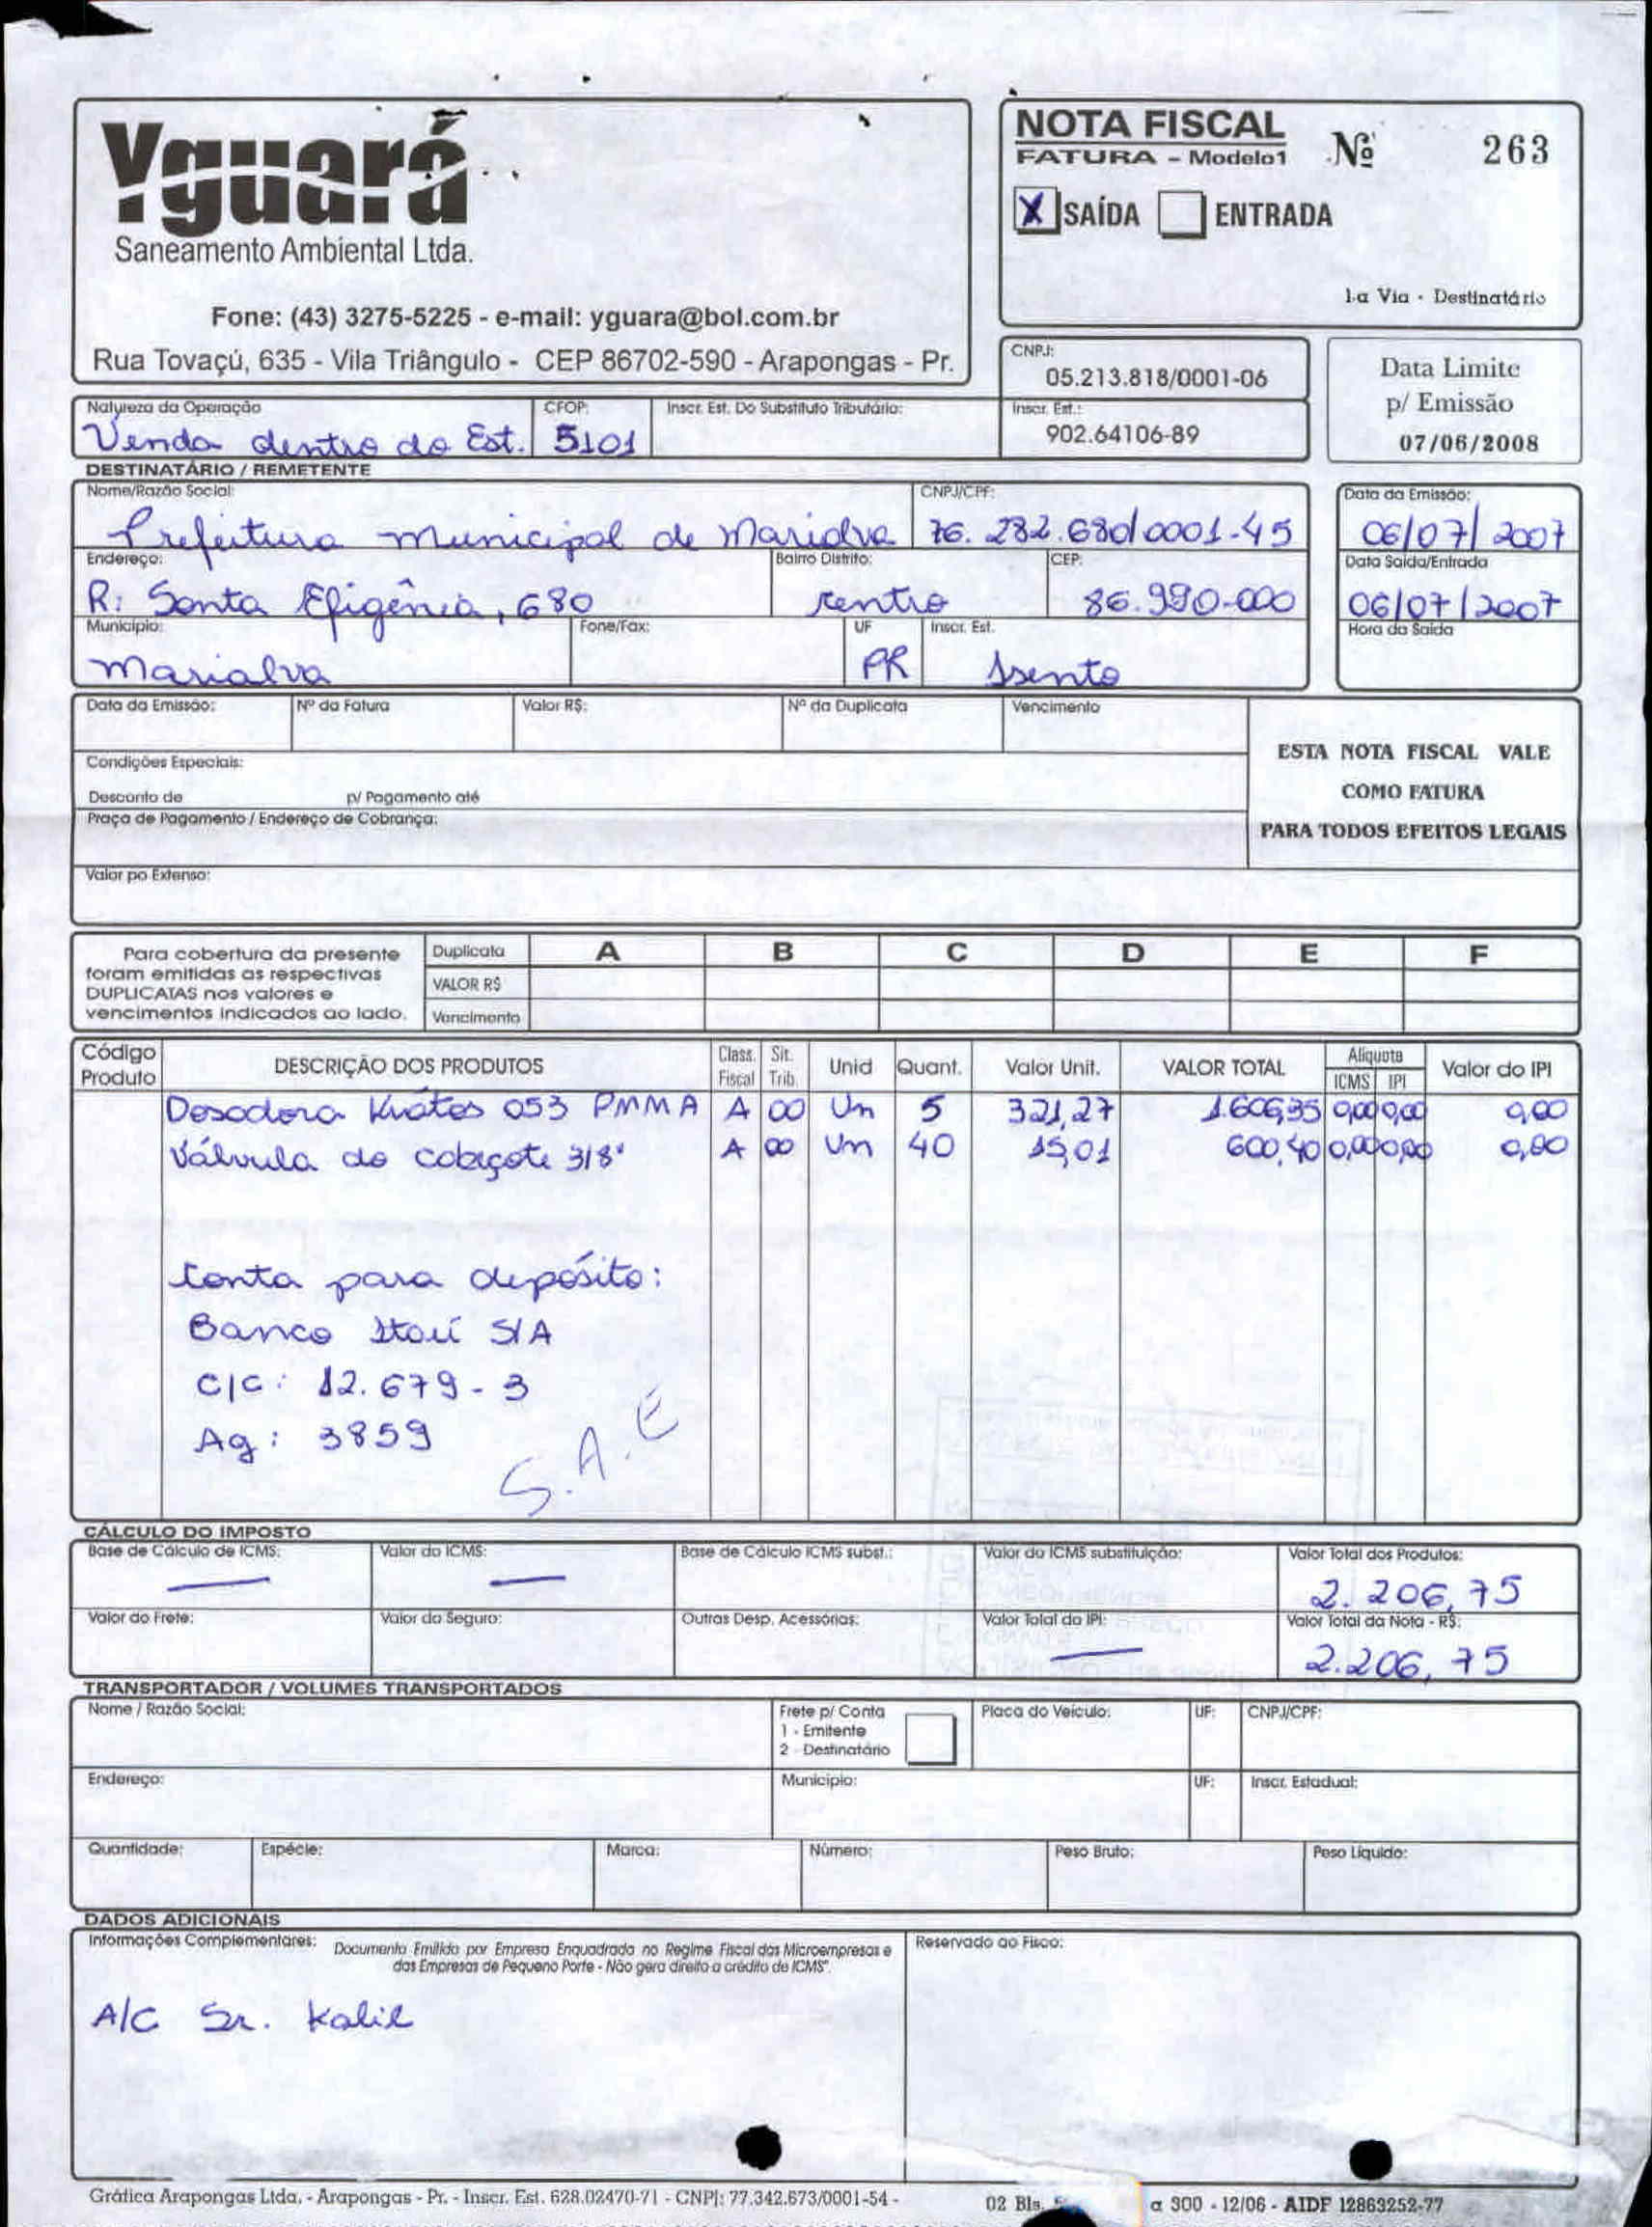 Yguará
Saneamento Ambiental Ltda.
Fone: (43) 3275-5225 - e-mail: yguara@bol.com.br
Rua Tovaçú, 635 - Vila Triângulo - CEP 86702-590 - Arapongas - Pr.
NOTA FISCAL
FATURA - Modelo1 Nº 263
X SAÍDA ENTRADA
1.a Via - Destinatário
CNPJ:
05.213.818/0001-06
Inscr. Est.:
902.64106-89
Data Limite
p/ Emissão
07/06/2008
Natureza da Operação CFOP: Inscr. Est. Do Substituto Tributário:
Venda dentro do Est. 5101
DESTINATÁRIO / REMETENTE
Nome/Razão Social: CNPJ/CPF: Data da Emissão:
Prefeitura Municipal de Marialva 76.282.680/0001-45 06/07/2007
Endereço: Bairro Distrito: CEP: Data Saída/Entrada
R: Santa Efigênia, 680 centro 86.990-000 06/07/2007
Município: Fone/Fax: UF Inscr. Est. Hora da Saída
Marialva PR Isento
Data da Emissão: Nº da Fatura Valor R$: Nº da Duplicata Vencimento
Condições Especiais:
Desconto de p/ Pagamento até
Praça de Pagamento / Endereço de Cobrança:
ESTA NOTA FISCAL VALE
COMO FATURA
PARA TODOS EFEITOS LEGAIS
Valor po Extenso:
Para cobertura da presente
foram emitidas as respectivas
DUPLICATAS nos valores e
vencimentos indicados ao lado.
Duplicata A B C D E F
VALOR R$
Vencimento
Código Produto DESCRIÇÃO DOS PRODUTOS Class. Fiscal Sit. Trib. Unid Quant. Valor Unit. VALOR TOTAL Alíquota ICMS IPI Valor do IPI
Dosadora Kratos 053 PMMA A 00 Un 5 321,27 1.606,35 0,00 0,00 0,00
Válvula do cabeçote 3/8" A 00 Un 40 15,01 600,40 0,00 0,00 0,00
Conta para depósito:
Banco Itaú S/A
C/C: 12.679-3
Ag: 3859
S.A.E
CÁLCULO DO IMPOSTO
Base de Cálculo de ICMS: Valor do ICMS: Base de Cálculo ICMS subst.: Valor do ICMS substituição: Valor Total dos Produtos:
— — 2.206,75
Valor do Frete: Valor do Seguro: Outras Desp. Acessórias: Valor Total do IPI: Valor Total da Nota - R$:
— 2.206,75
TRANSPORTADOR / VOLUMES TRANSPORTADOS
Nome / Razão Social: Frete p/ Conta Placa do Veículo: UF: CNPJ/CPF:
1 - Emitente
2 - Destinatário
Endereço: Município: UF: Inscr. Estadual:
Quantidade: Espécie: Marca: Número: Peso Bruto: Peso Líquido:
DADOS ADICIONAIS
Informações Complementares: Documento Emitido por Empresa Enquadrada no Regime Fiscal das Microempresas e
das Empresas de Pequeno Porte - Não gera direito a crédito de ICMS".
Reservado ao Fisco:
A/C Sr. Kalil
Gráfica Arapongas Ltda. - Arapongas - Pr. - Inscr. Est. 628.02470-71 - CNPJ: 77.342.673/0001-54 - 02 Bls. a 300 - 12/06 - AIDF 12863252-77